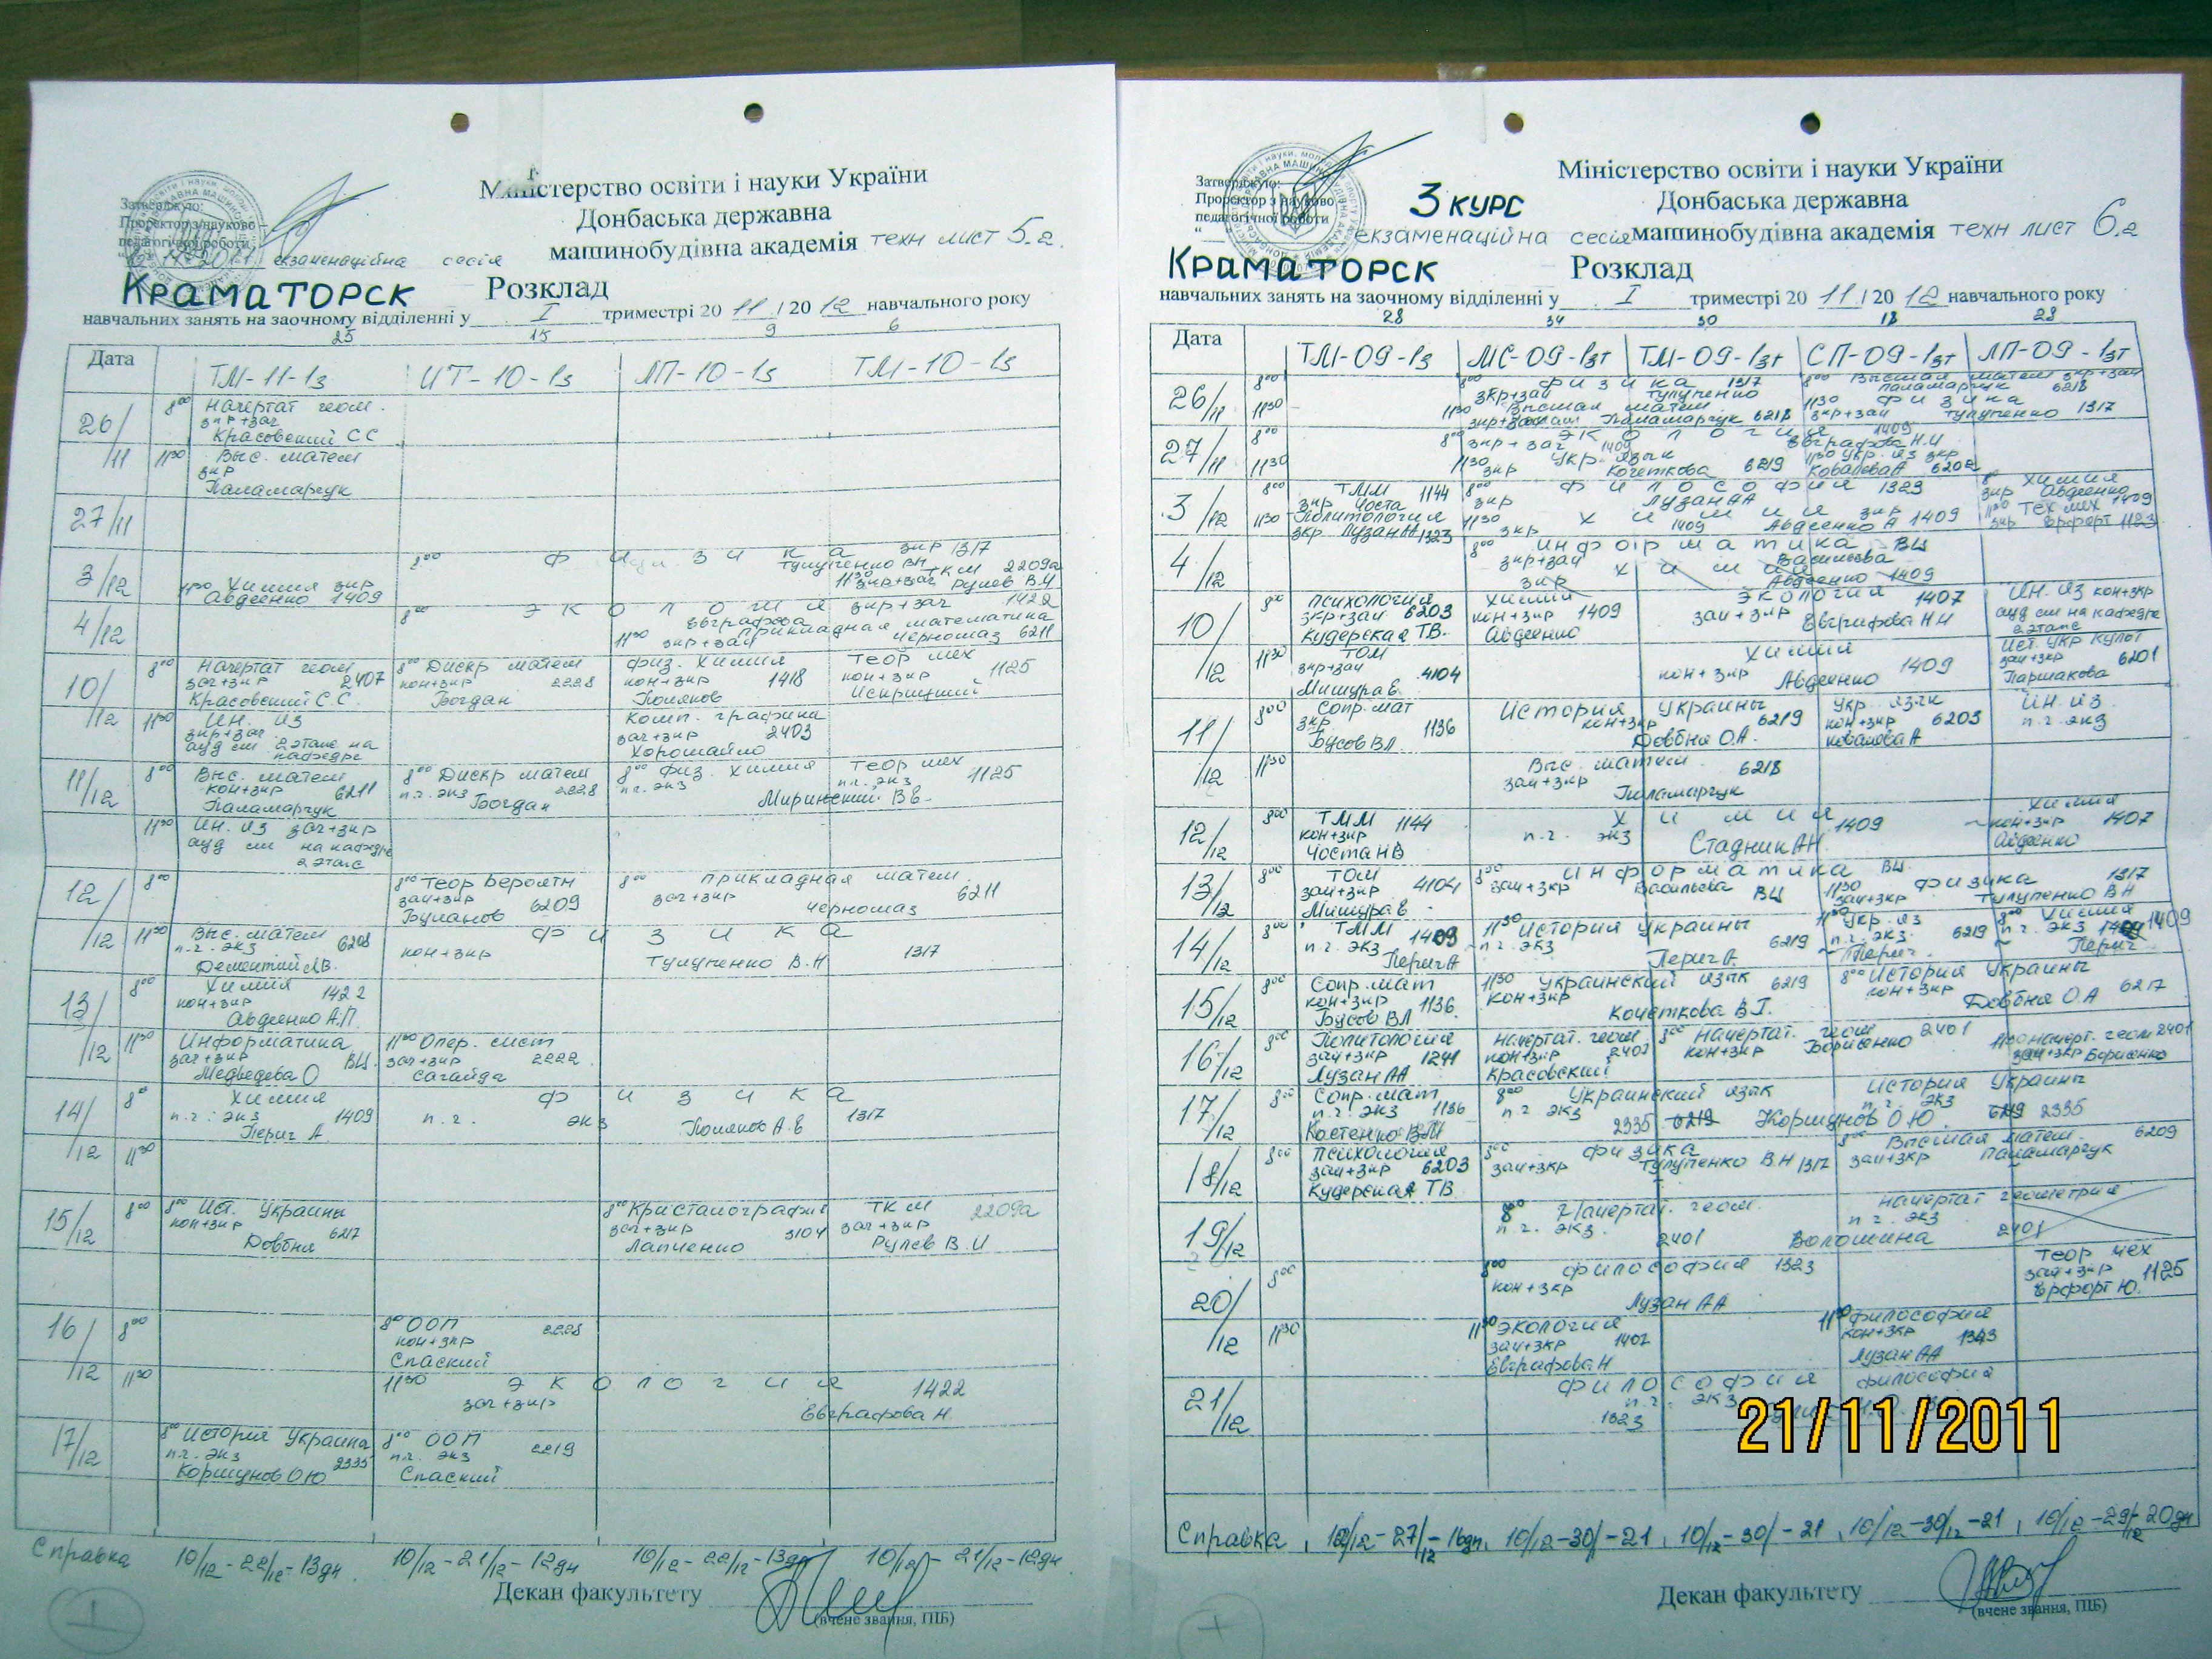 Міністерство освіти і науки України
Донбаська державна
машинобудівна академія техн лист 5.2
Затверджую:
Проректор з науково –
педагогічної роботи
екзаменаційна сесія
Краматорск Розклад
навчальних занять на заочному відділенні у I триместрі 20 11 / 20 12 навчального року
25 15 9 6
Дата ТМ-11-1з ИТ-10-1з ЛП-10-1з ТМ-10-1з
26/11 8⁰⁰ Начертат геом.
зкр+зач
Красовский С С
11³⁰ Выс. матем
зкр
Паламарчук
27/11
3/12 8⁰⁰ Физика зкр 1317
Тулупенко ВН
11³⁰ ТКМ 2209а
зкр+зач Рулев В.И
11³⁰ Химия зкр
Авдеенко 1409
4/12 8⁰⁰ Экология зкр+зач 1422
Евграфова
11³⁰ прикладная математика
зкр+зач Черномаз 6211
10/12 8⁰⁰ Начертат геом
зач+зкр 2407
Красовский С.С.
8⁰⁰ Дискр матем
кон+зкр 2228
Богдан
физ. химия
кон+зкр 1418
Поляков
теор мех
кон+зкр 1125
Искрицкий
11³⁰ Ин. яз
зкр+зач
ауд см 2 этаже на
кафедре
Комп. графика
зач+зкр 2403
Хорошайло
11/12 8⁰⁰ Выс. матем
кон+зкр 6211
Паламарчук
8⁰⁰ Дискр матем
п.г. экз 2228
Богдан
8⁰⁰ физ. химия
п.г. экз
теор мех
п.г. экз 1125
Миринский В В.
11³⁰ Ин. яз зач+зкр
ауд см на кафедре
2 этаже
12/12 8⁰⁰
8⁰⁰ Теор вероятн
зач+зкр 6209
Буланов
8⁰⁰ прикладная матем.
зач+зкр 6211
Черномаз
11³⁰ Выс. матем
п.г. экз 6208
Дементий ЛВ.
Физика
кон+зкр Тулупенко В.Н 1317
13/12 8⁰⁰ Химия
кон+зкр 1422
Авдеенко А.П.
11³⁰ Информатика
зач+зкр ВЦ.
Медведева О
11³⁰ Опер. сист
зач+зкр 2222
Сагайда
14/12 8⁰⁰ Химия
п.г. экз 1409
Перич А.
Физика
п.г. экз Поляков А.В 1317
11³⁰
15/12 8⁰⁰ Ист. Украины
кон+зкр 6217
Довбня
8⁰⁰ Кристалография
зач+зкр 3104
Лапченко
ТКМ 2209а
зач+зкр
Рулев В.И
16/12 8⁰⁰ ООП 2228
кон+зкр
Спаский
11³⁰ Экология 1422
зач+зкр
Евграфова Н.
17/12 8⁰⁰ История Украина
п.г. экз 2335
Коршунов О Ю
8⁰⁰ ООП
п.г. экз 2219
Спаский
Справка 10/12-22/12-13дн. 10/12-21/12-12дн 10/12-22/12-13дн 10/12-21/12-12дн.
Декан факультету
(вчене звання, ПІБ)
Міністерство освіти і науки України
Донбаська державна
машинобудівна академія техн лист 6.2
Затверджую:
Проректор з науково
педагогічної роботи
3 курс
екзаменаційна сесія
Краматорск Розклад
навчальних занять на заочному відділенні у I триместрі 20 11 / 20 12 навчального року
28 34 30 18 28
Дата ТМ-09-1з МС-09-1зт ТМ-09-1зт СП-09-1зт ЛП-09-1зт
26/11 8⁰⁰ физика 1317
зкр+зач Тулупенко
8⁰⁰ Высшая матем зкр+зач
Паламарчук 6218
11³⁰ Высшая матем
зкр+зач Паламарчук 6218
11³⁰ физика
зкр+зач Тулупенко 1317
27/11 8⁰⁰ Экология 1409
зкр+зач 1409 Евграфова Н.И
11³⁰ Укр. язык
зкр Кочеткова 6219
11³⁰ укр. яз зкр
Ковалева А 6202
3/12 8⁰⁰ ТММ 1144
зкр Чоста
8⁰⁰ философия 1323
зкр Лузан АА
8⁰⁰ Химия
зкр Авдеенко 1409
11³⁰ Политология
зкр Лузан А 1323
11³⁰ Химия зкр
зкр 1409 Авдеенко А 1409
11³⁰ Тех мех
зкр Ерфорт 1123
4/12 8⁰⁰ информатика ВЦ
зкр+зач Васильева
химия
зкр Авдеенко 1409
10/12 8⁰⁰ психология
зкр+зач 6203
Кудерская ТВ.
химия
кон+зкр 1409
Авдеенко
экология 1407
зач+зкр Евграфова Н.И
Ин. яз кон+зкр
ауд см на кафедре
2 этаже
11³⁰ ТОМ
зкр+зач 4104
Мишура Е.
химия
кон+зкр 1409
Авдеенко
Ист. укр культ
зач+зкр 6201
Паршакова
11/12 8⁰⁰ Сопр. мат
зкр 1136
Бусов ВЛ.
История Украины
кон+зкр 6219
Довбня О.А.
Укр. язык
кон+зкр 6203
Ковалева А
Ин. яз.
п.г. экз
11³⁰ Выс. матем.
зач+зкр 6218
Паламарчук
12/12 8⁰⁰ ТММ 1144
кон+зкр
Чоста НВ
химия
п.г. экз 1409
Стадник АН.
химия
кон+зкр 1407
Авдеенко
13/12 8⁰⁰ ТОМ
зач+зкр 4104
Мишура Е.
8⁰⁰ информатика ВЦ.
зач+зкр Васильева ВЦ
11³⁰ физика 1317
зач+зкр Тулупенко В Н
14/12 8⁰⁰ ТММ
п.г. экз 1409
Перич А
11³⁰ История Украины
п.г. экз 6219
Перич А.
11³⁰ Укр. яз
п.г. экз. 6219
Перич.
8⁰⁰ Химия
п.г. экз 1409
Перич.
15/12 8⁰⁰ Сопр. мат
кон+зкр 1136
Бусов ВЛ
11³⁰ Украинский язык 6219
кон+зкр
Кочеткова В.І.
8⁰⁰ История Украины
кон+зкр 6217
Довбня О.А
16/12 8⁰⁰ Политология
зач+зкр 1241
Лузан АА
Начертат. геом.
кон+зкр 2407
Красовский
8⁰⁰ Начертат. геом 2401
кон+зкр Борисенко
11³⁰ Начерт. геом 2401
зач+зкр Борисенко
17/12 8⁰⁰ Сопр. мат
п.г. экз 1136
Костенко В.М
8⁰⁰ Украинский язык
п.г. экз 2335 6219 Коршунов О Ю
История Украины
п.г. экз
6219 2335
18/12 8⁰⁰ Психология
зач+зкр 6203
Кудерская ТВ
8⁰⁰ физика
зач+зкр Тулупенко В.Н 1317
8⁰⁰ Высшая матем. 6209
зач+зкр Паламарчук
19/12 8⁰⁰ Начертат. геом.
п.г. экз.
2401 Волошина
начертат геометрия
п.г. экз
2401
20/12 8⁰⁰ философия 1323
кон+зкр
Лузан АА
теор мех
зач+зкр 1125
Ерфорт Ю.
11³⁰ экология
зач+зкр 1407
Евграфова Н
11³⁰ философия
кон+зкр 1323
Лузан АА
21/12 философия
п.г. экз
1323
философия
21/11/2011
Справка 12/12-27/12-16дн, 10/12-30/-21, 10/12-30/-21, 10/12-30/12-21, 10/12-29/12-20дн
Декан факультету
(вчене звання, ПІБ)